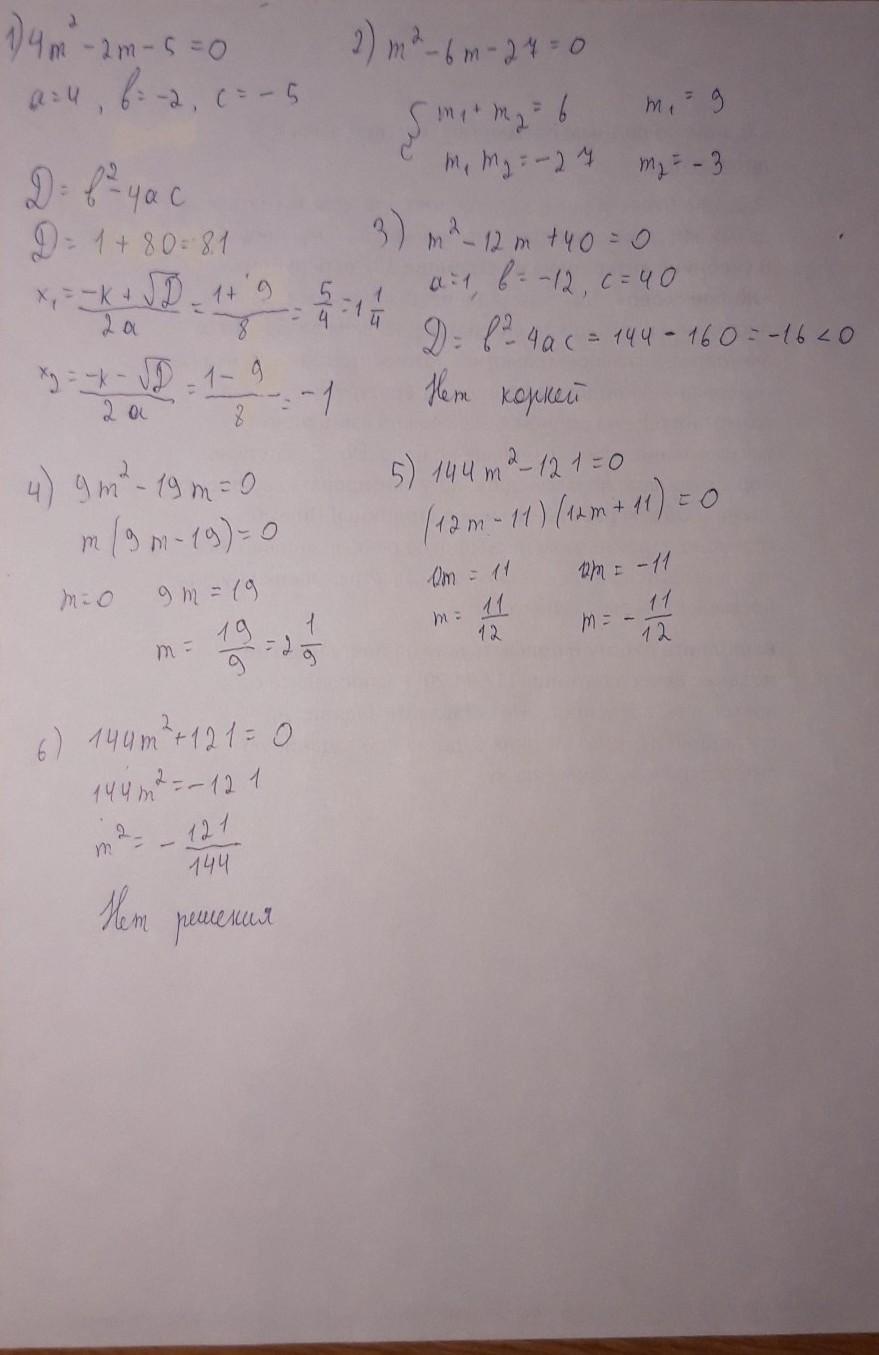 1) 4m² - 2m - 5 = 0
a=4, b=-2, c=-5
D = b² - 4ac
D = 1 + 80 = 81
x₁ = (-k + √D)/2a = (1 + 9)/8 = 5/4 = 1 1/4
x₂ = (-k - √D)/2a = (1 - 9)/8 = -1
2) m² - 6m - 27 = 0
{ m₁ + m₂ = 6 m₁ = 9
m₁ m₂ = -27 m₂ = -3
3) m² - 12m + 40 = 0
a=1, b=-12, c=40
D = b² - 4ac = 144 - 160 = -16 < 0
Нет корней
4) 9m² - 19m = 0
m(9m - 19) = 0
m=0 9m = 19
m = 19/9 = 2 1/9
5) 144m² - 121 = 0
(12m - 11)(12m + 11) = 0
12m = 11 12m = -11
m = 11/12 m = -11/12
6) 144m² + 121 = 0
144m² = -121
m² = -121/144
Нет решения